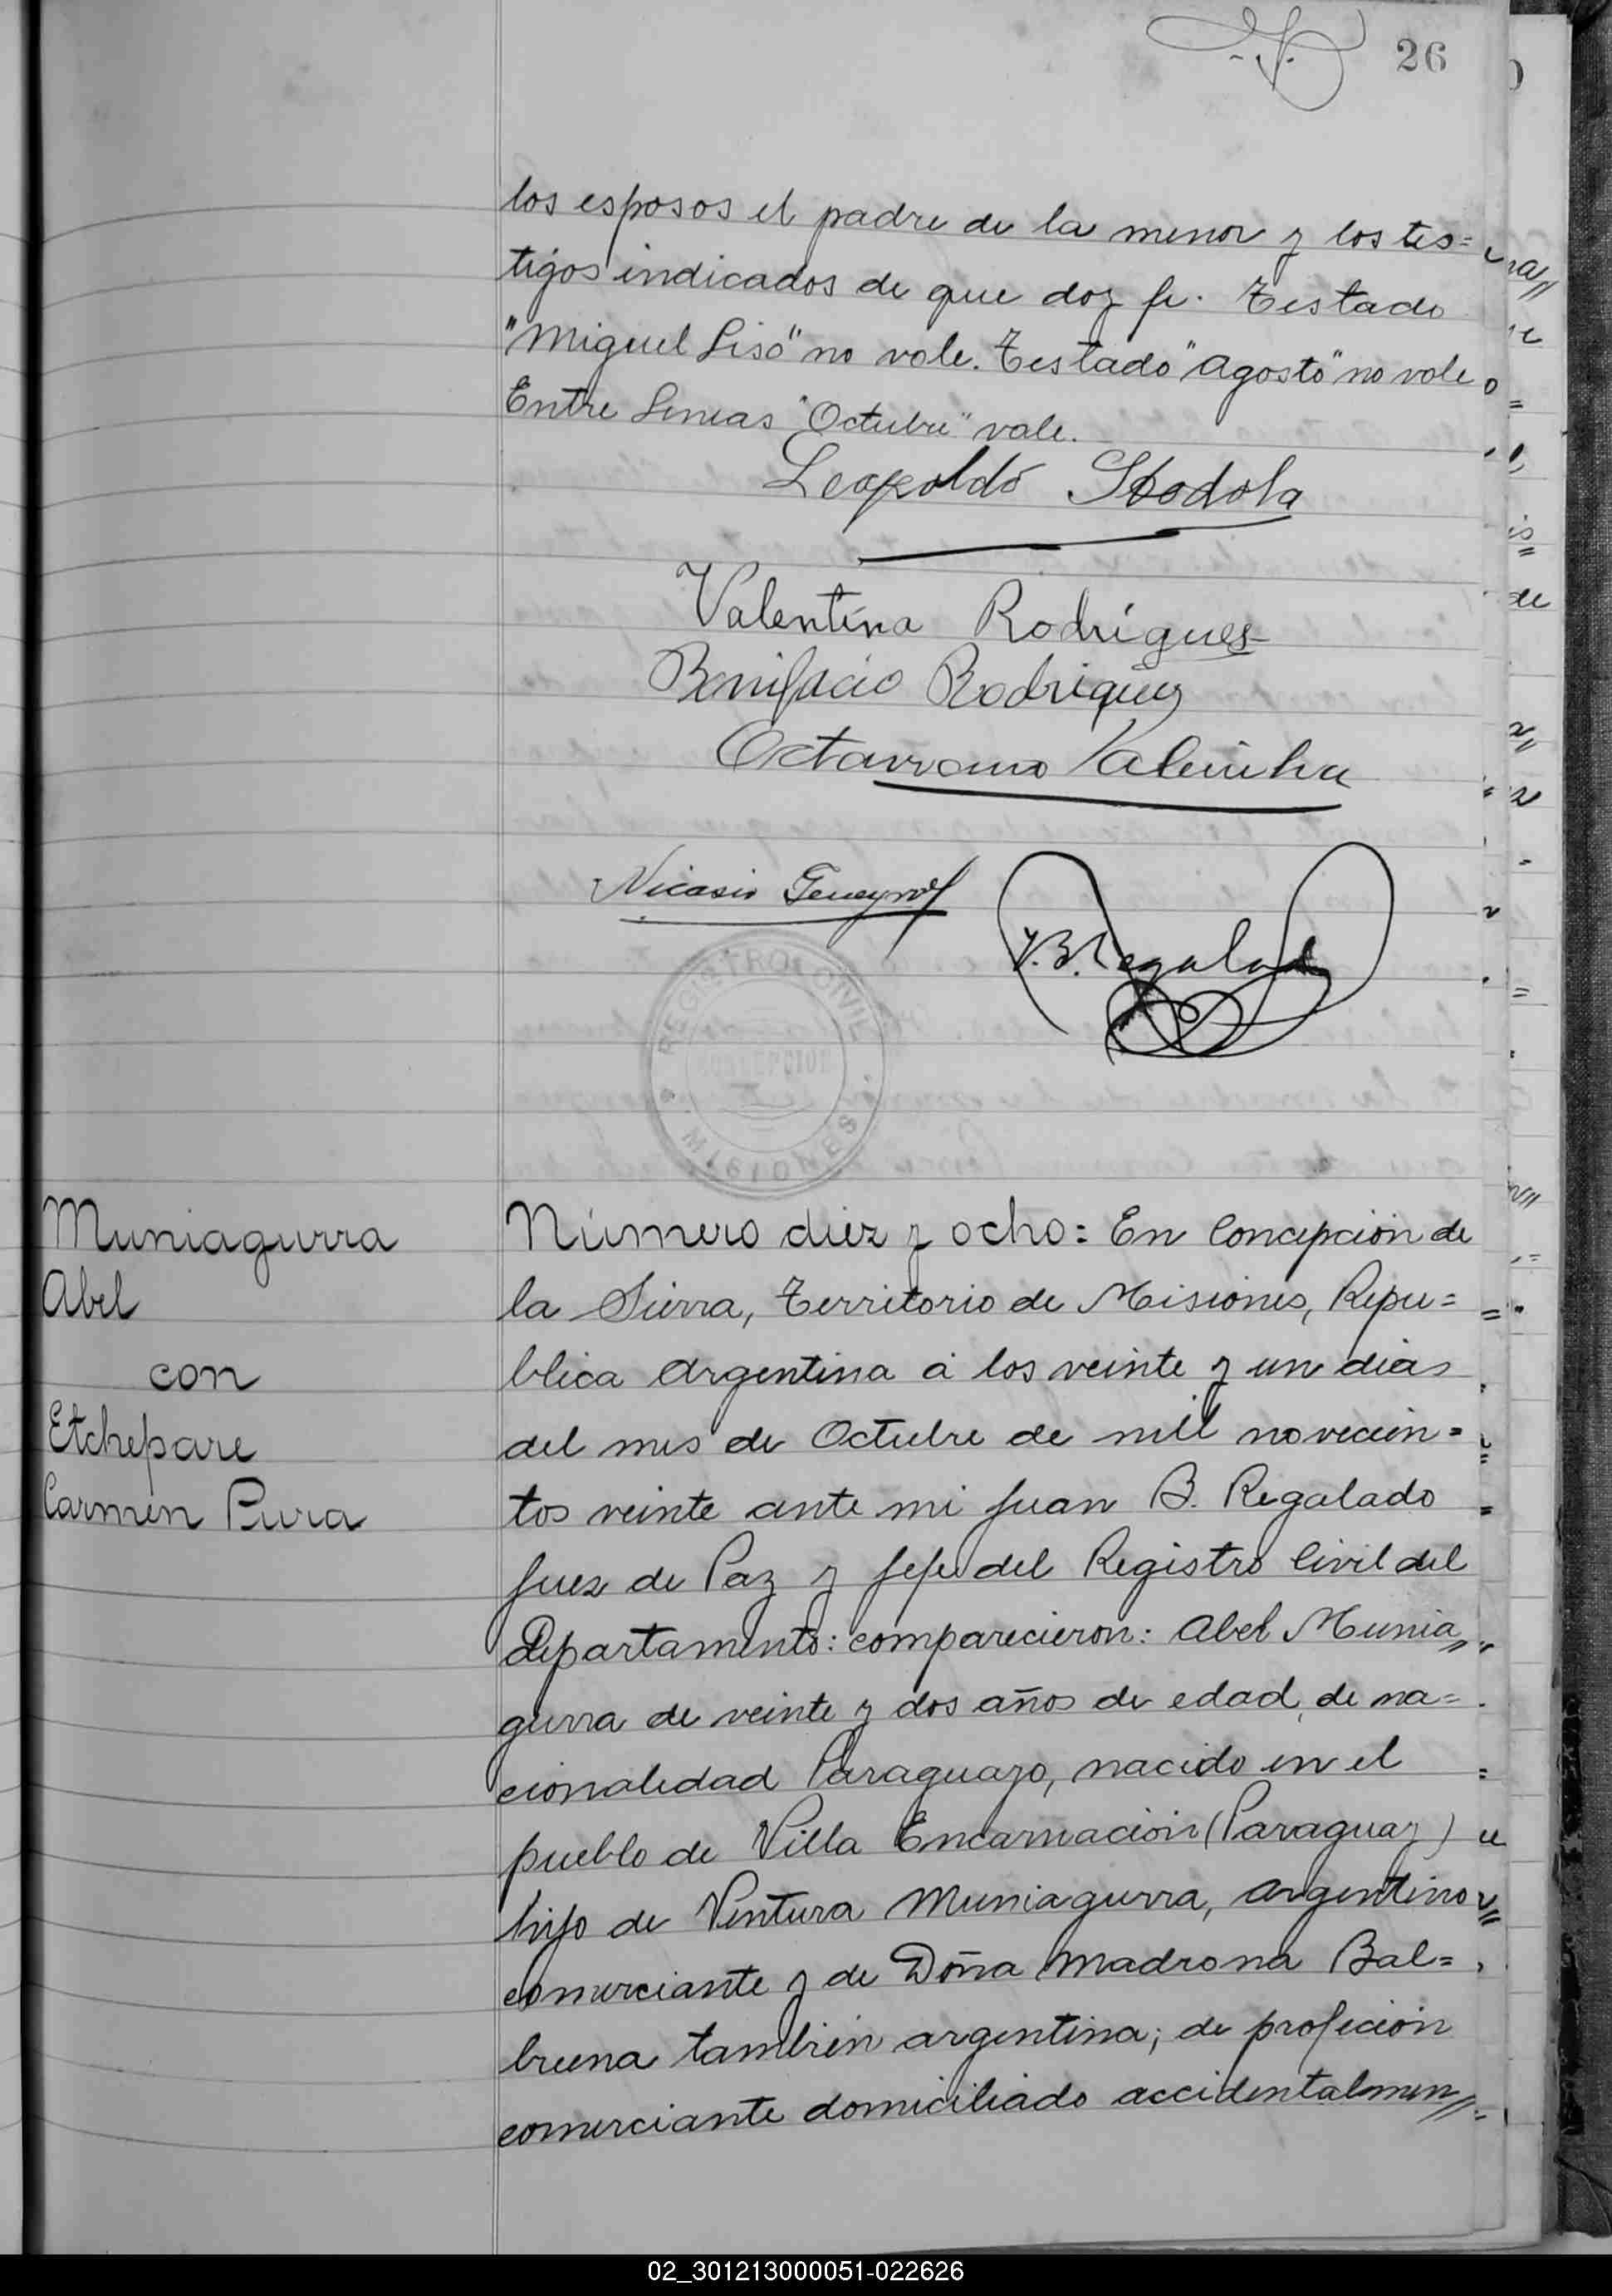 26
los esposos el padre de la menor y los tes=
tigos indicados de que doy fe. Testado
"Miguel Lisò" no vale. Testado "Agosto" no vale
Entre Lineas "Octubre" vale.
Leopoldo
Valentina Rodrigues
Bonifacio Rodriguez
Nicasio
J. B. Regalado
REGISTRO CIVIL
CONCEPCION
MISIONES
Muniagurra
Abel
con
Etchepare
Carmen Pura
Número diez y ocho: En Concepción de
la Sierra, Territorio de Misiones, Repu=
blica Argentina á los veinte y un dias
del mes de Octubre de mil novecien=
tos veinte ante mi Juan B. Regalado
Juez de Paz y Jefe del Registro Civil del
Departamento: comparecieron: Abel Munia
gurra de veinte y dos años de edad, de na=
cionalidad Paraguayo, nacido en el
pueblo de Villa Encarnación (Paraguay)
hijo de Ventura Muniagurra, argentino
comerciante y de Doña Madrona Bal=
buena también argentina; de profeción
comerciante domiciliado accidentalmen
02_301213000051-022626